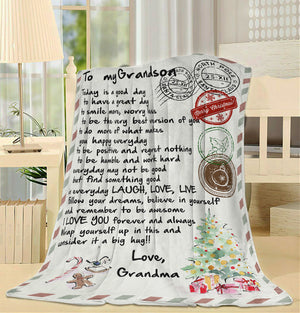 To my Grandson
Today is a good day
to have a great day
to smile more, worry less
to be the very best version of you
to do more of what makes
you happy everyday
to be positive and regret nothing
to be humble and work hard
everyday may not be good
but find something good
in everyday LAUGH, LOVE, LIVE
follow your dreams, believe in yourself
and remember to be awesome
I LOVE YOU forever and always
Wrap yourself up in this and
consider it a big hug!!
Love,
Grandma
NORTH POLE
Merry Christmas